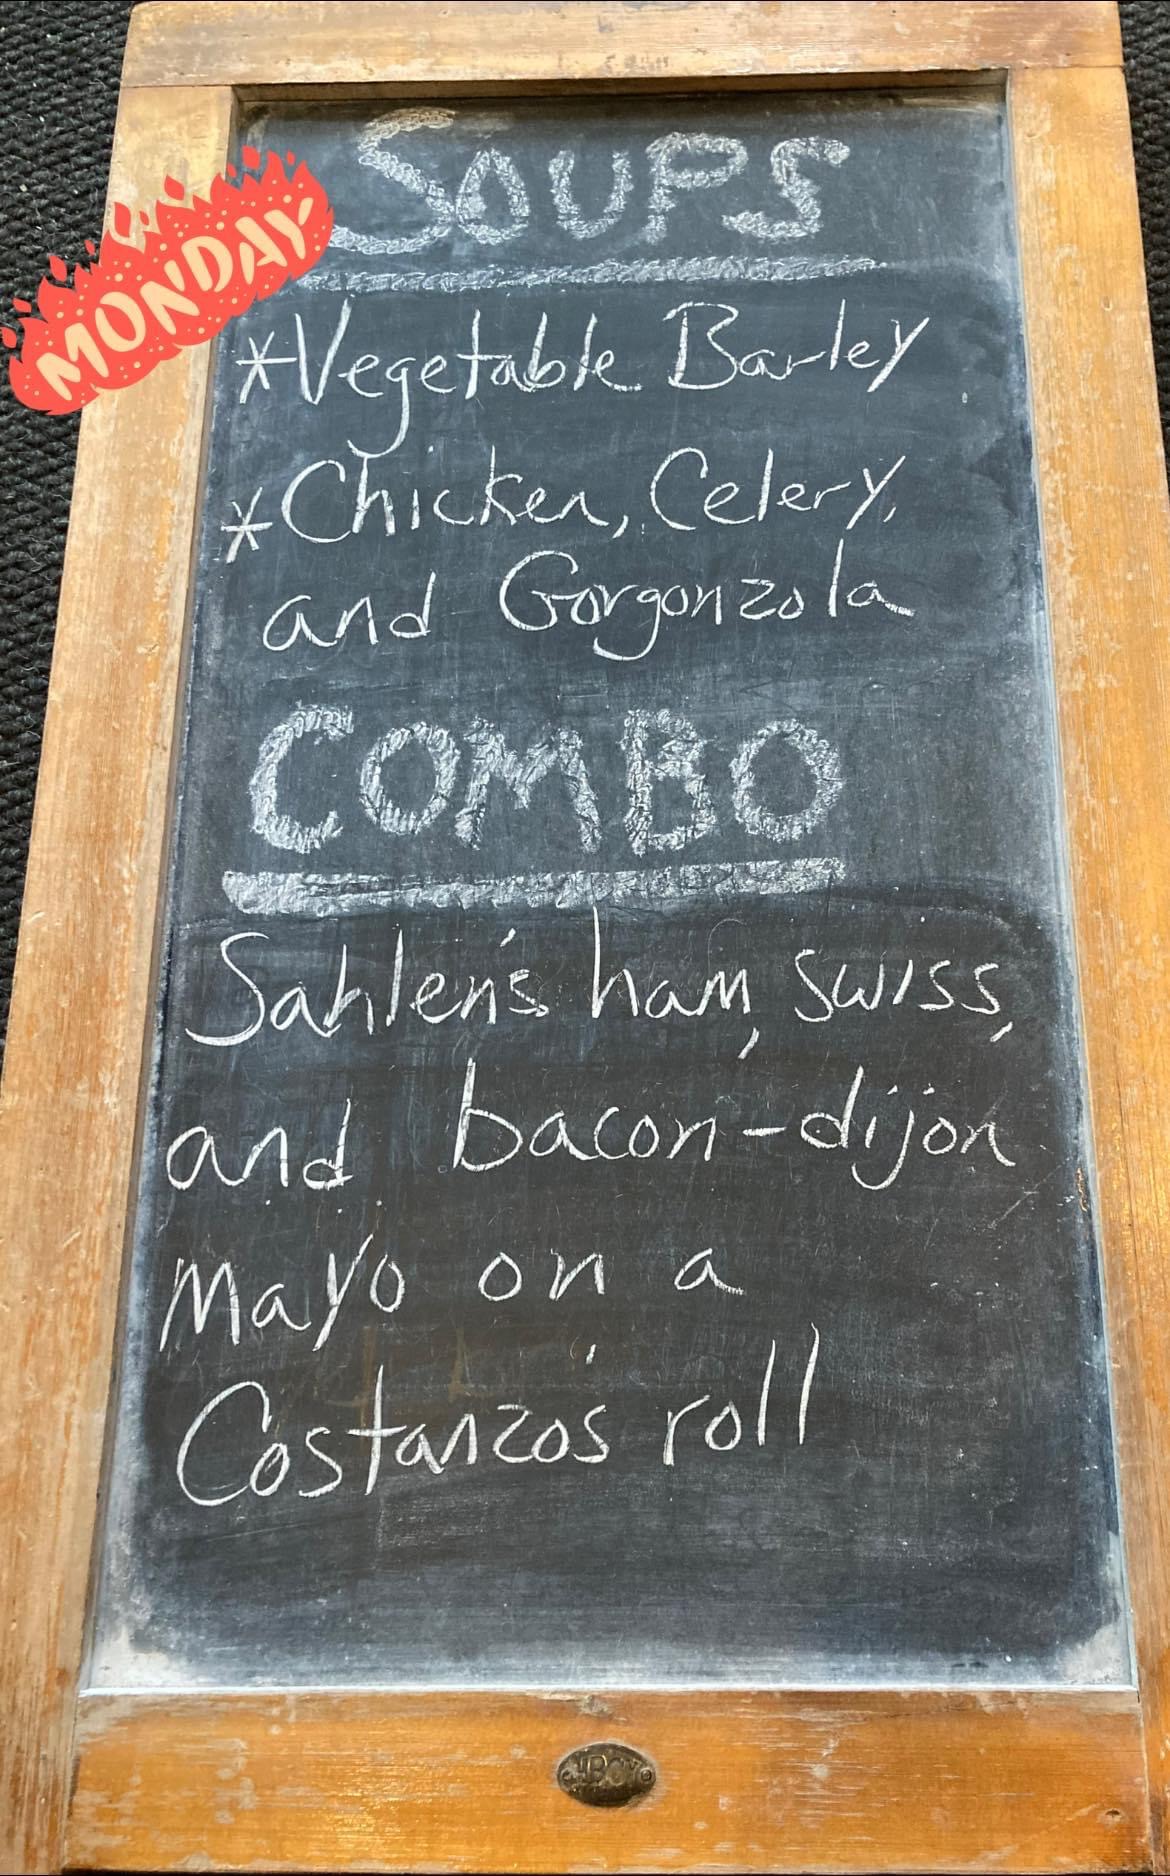 SOUPS
MONDAY
*Vegetable Barley
*Chicken, Celery,
and Gorgonzola
COMBO
Sahlen's ham, swiss,
and bacon-dijon
mayo on a
Costanzo's roll